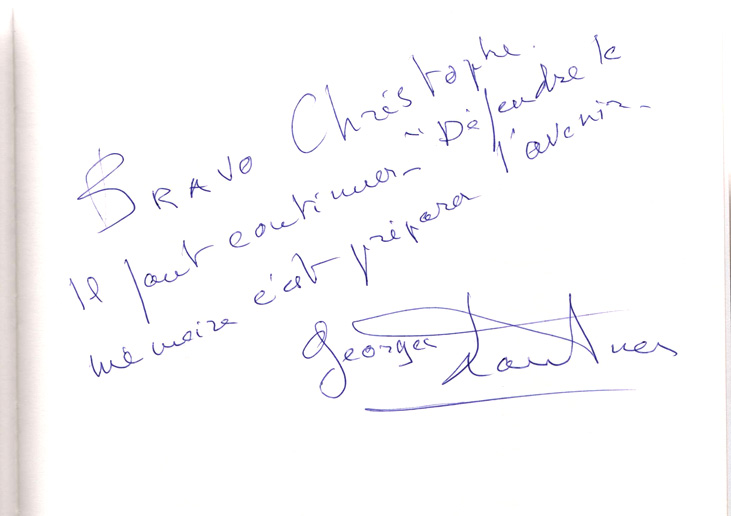 BRAVO Christophe.
Il faut continuer – "Défendre la
mémoire c'est préparer l'avenir –
Georges Lautner